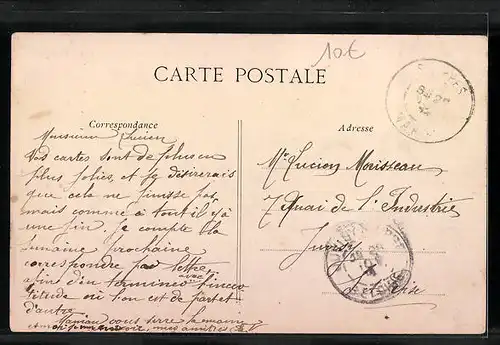 10€
CARTE POSTALE
Correspondance
Adresse
Monsieur Lucien
Vos cartes sont de plus en
plus jolies, et je désirerais
que cela ne finisse pas,
mais comme à tout il y a
une fin. je compte la
semaine prochaine
correspondre par lettre
afin d'en terminer avec
où l'on est de part et
d'autre
Maman vous serre la main
mes amitiés
Mr Lucien Morisseau
7 Quai de l'Industrie
Juvisy
Oise